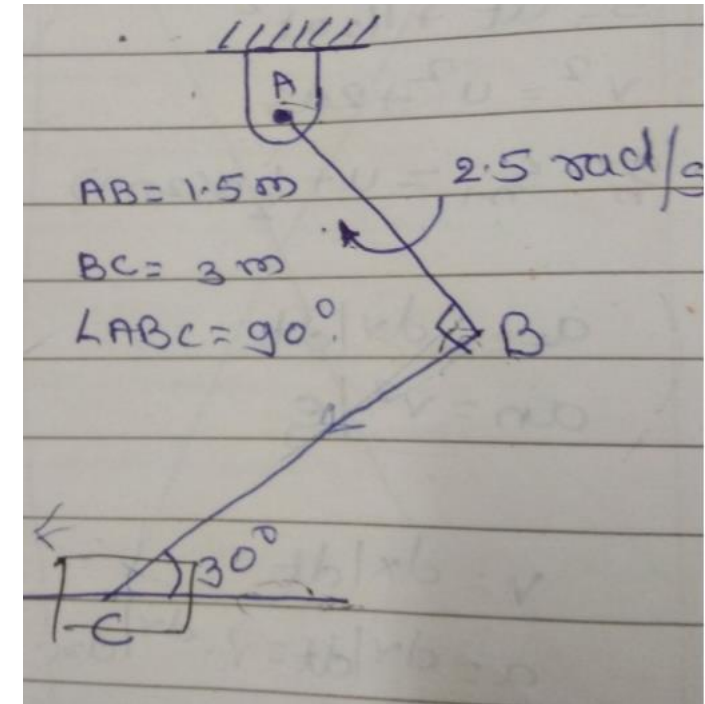 A
2.5 rad/s
AB = 1.5 m
BC = 3 m
∠ABC = 90°.
B
30°
C